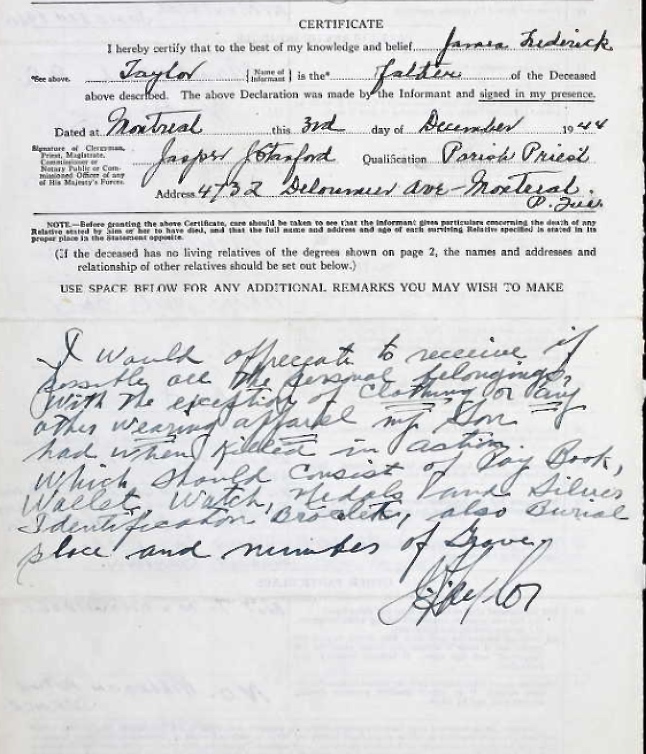 CERTIFICATE
I hereby certify that to the best of my knowledge and belief James Frederick
*See above. Taylor {Name of Informant} is the* Father of the Deceased
above described. The above Declaration was made by the Informant and signed in my presence.
Dated at Montreal this 3rd day of December 1944
Signature of Clergyman,
Priest, Magistrate,
Commissioner or
Notary Public or Com-
missioned Officer of any
of His Majesty's Forces.
Jasper J Stanford Qualification Parish Priest
Address 4732 Delorimier Ave - Montreal.
P. Que.
NOTE.—Before granting the above Certificate, care should be taken to see that the informant gives particulars concerning the death of any
Relative stated by him or her to have died, and that the full name and address and age of each surviving Relative specified is stated in its
proper place in the Statement opposite.
(If the deceased has no living relatives of the degrees shown on page 2, the names and addresses and
relationship of other relatives should be set out below.)
USE SPACE BELOW FOR ANY ADDITIONAL REMARKS YOU MAY WISH TO MAKE
I Would appreceate to receive if
possibly all the personal belongings,
With the exception of Clothing or any
other wearing apparel my Son
had when Killed in action.
Which should Consist of Pay Book,
Wallet, Watch, Medals and Silver
Identification Bracelets, also Burial
place and number of Grave.
J.F. Taylor